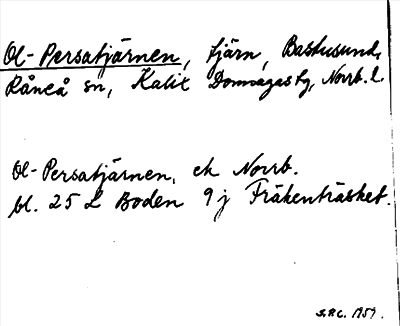 Ol-Persatjärnen, tjärn, Bastusund,
Råneå sn, Kalix Domsagas tg, Norrb. l.
Ol-Persatjärnen, ek Norrb.
bl. 25 L Boden 9 j Fräkenträsket.
1959.